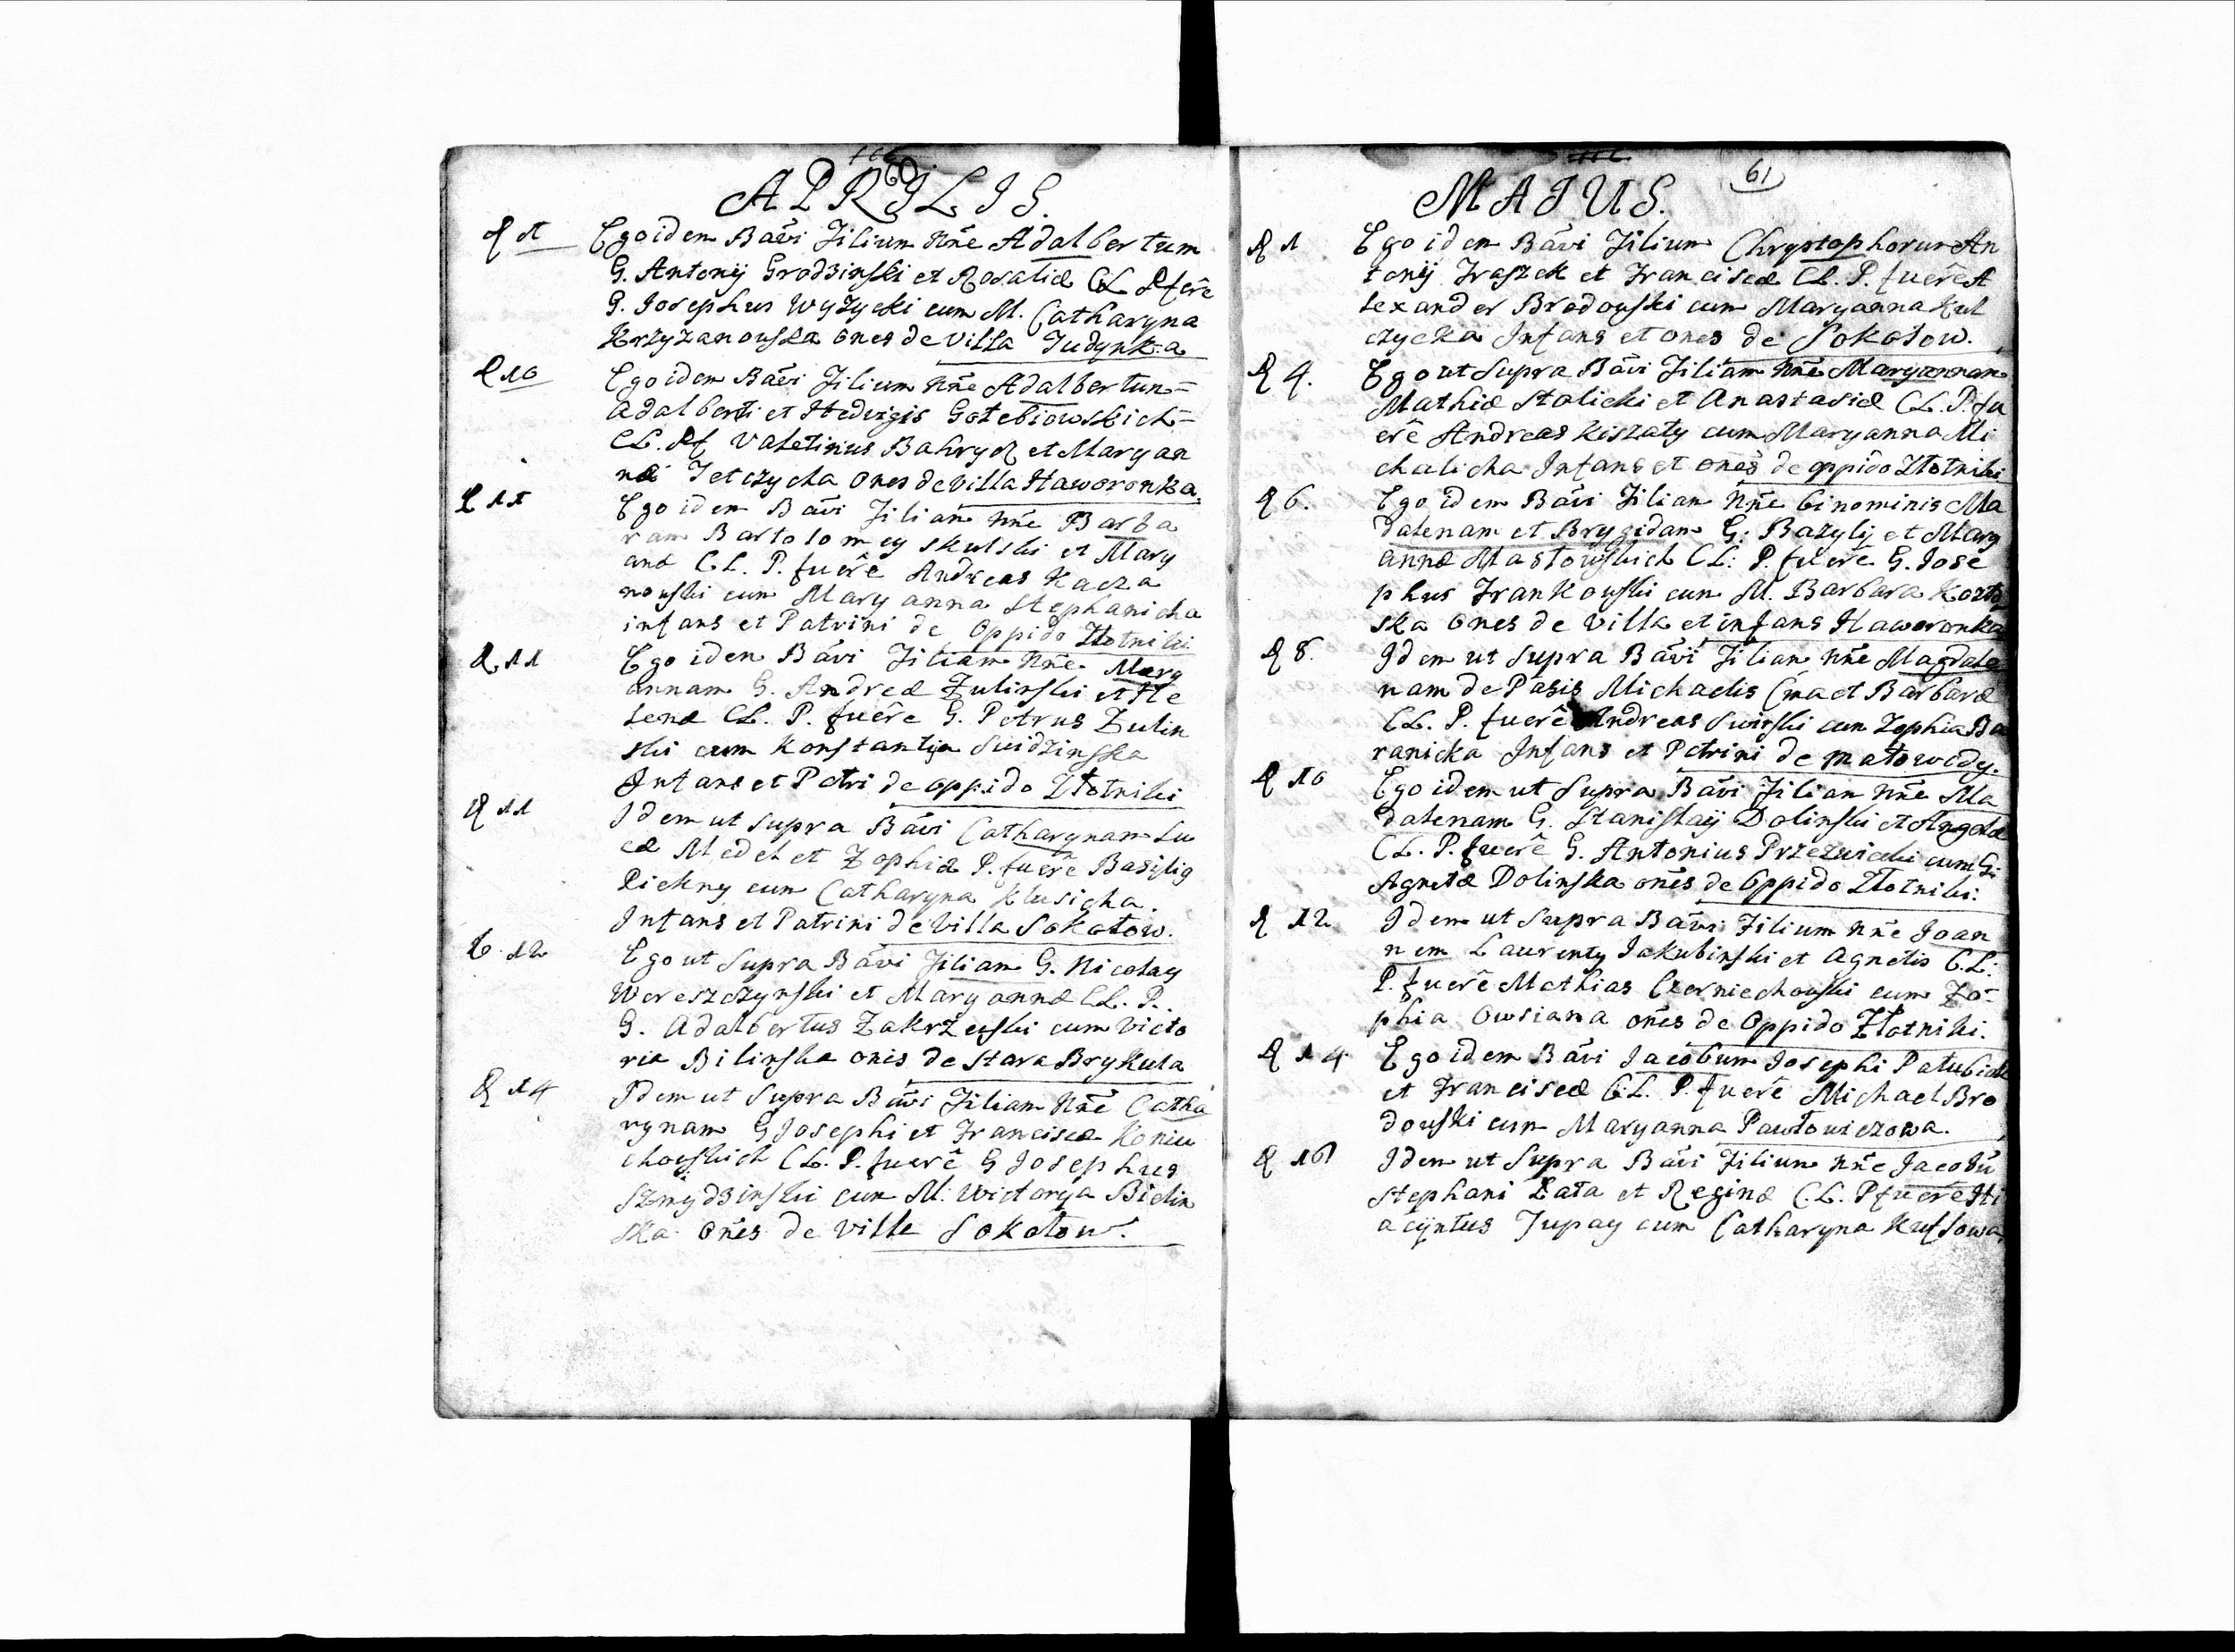 60
APRILIS.
Ego idem Bãvi Filium Nñe Adalbertum
G. Antonij Grodzinski et Rosaliæ CL Pfere
G. Josephus Wyzycki cum M. Catharyna
Krzyzanouska ones de villa Judynka
10 Ego idem Bãvi Filium Nñe Adalbertum=
Adalberti et Hedvigis Gołebiowskich=
CL. Pf Valetinus Bahryʠ et Maryan
næ Jetczycha ones de villa Haworonka.
Ego idem Bãvi Filiam Nñe Barba
ram Bartolomey Skulski et Mary
anæ CL. P. fuerê Andreas Kacza
nouski cum Maryanna Stephanicha
infans et Patrini de Oppido Złotniki
11 Ego idem Bãvi Filiam Nñe Mary
annam G. Andreæ Zulinski et He
lenæ CL. P. fuerê G. Petrus Zulin
ski cum Konstantija Swidzinska
Infans et Petri de oppido Złotniki
11 Idem ut Supra Bãvi Catharynam Lu
cæ Medel et Zophiæ P. fuerê Basylig
Piekny cum Catharyna Klusicha.
Infans et Patrini de Villa Sokołow.
12 Ego ut Supra Bãvi Filiam G. Nicolay
Wereszczynski et Maryannæ CL. P.
G. Adalbertus Zakrzeuski cum Victo
ria Bilinska onis de Stara Brykula
14 Idem ut Supra Bãvi Filiam Nñe Catha
rynam G Josephi et Franciscæ Koniu
chouskich CL. P. fuerê G Josephus
Szmydzinski cum M. Wictorya Bielin
ska oñes de Ville Sokołow.
61
MAJUS.
1 Ego idem Bãvi Filium Chrystophorum An
tonij Fraszek et Franciscæ CL. P. fuerê A
lexander Brodouski cum Maryanna Kul
czycka Infans et ones de Sokołow.
4. Ego ut Supra Bãvi Filiam Nñe Maryannam
Mathiæ Stalicki et Anastasiæ CL. P. fu
erê Andreas Kiszaty cum Maryanna Mi
chalicha Infans et onẽs de oppido Złotniki
6. Ego idem Bãvi Filiam Nñe binominis Ma
dalenam et Brygidam G: Bazylij et Mary
annæ Masłowskich CL: P. fuerê G. Jose
phus Frankouski cum M. Barbara Kozło
ska ones de villa et infans Haworonka
8. Idem ut Supra Bãvi Filiam Nñe Magdale
nam de Pasis Michaelis Cma et Barbaræ
CL. P. fuerê Andreas Swirski cum Zophia Ba
ranicka Infans et Petrini de małowody.
10 Ego idem ut Supra Bãvi Filiam Nñe Ma
dalenam G. Stanislaij Dolinski et Angelæ
CL. P. fuerê G. Antonius Przezwicki cum G.
Agnetæ Dolinska onẽs de Oppido Złotniki.
12 Idem ut Supra Bãvi Filium Nñe Joan
nem Laurenty Jakubinski et Agnetis C.L:
P. fuerê Mathias Czerniechouski cum Zo=
phia Owsiana onẽs de Oppido Złotniki.
14 Ego idem Bãvi Jacobum Josephi Palubiak
et Franciscæ C:L. P. fuerê Michael Bro
douski cum Maryanna Pawłowiczowa.
16 Idem ut Supra Bãvi Filium Nñe Jacobũ
Stephani Łata et Reginæ C.L. P fuerê Hi
acijntus Jupay cum Catharyna Kufsowa.